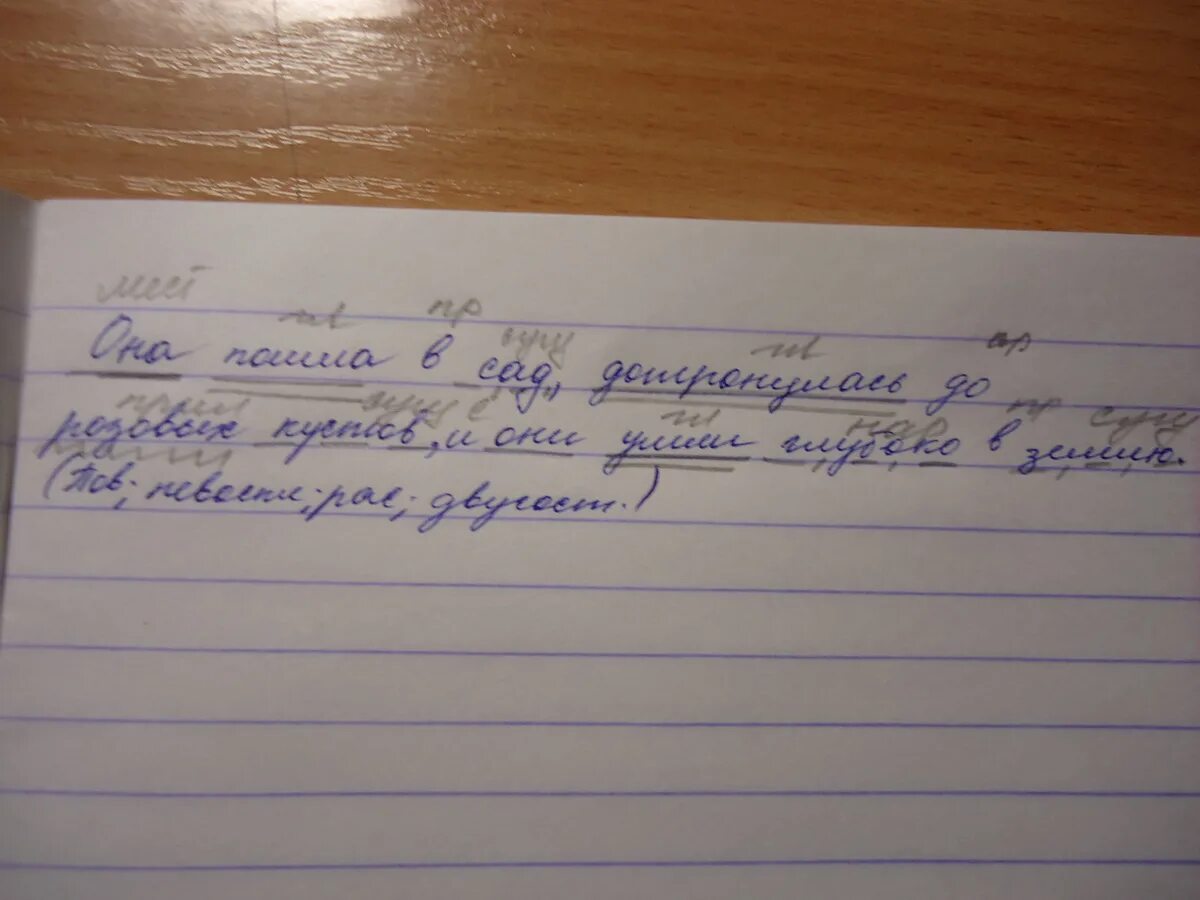 мест
гл пр сущ гл пр
Она пошла в сад, дотронулась до
прил сущ с гл нар пр сущ
розовых кустов, и они ушли глубоко в землю.
(Пов; невоскл; рас; двусост.)